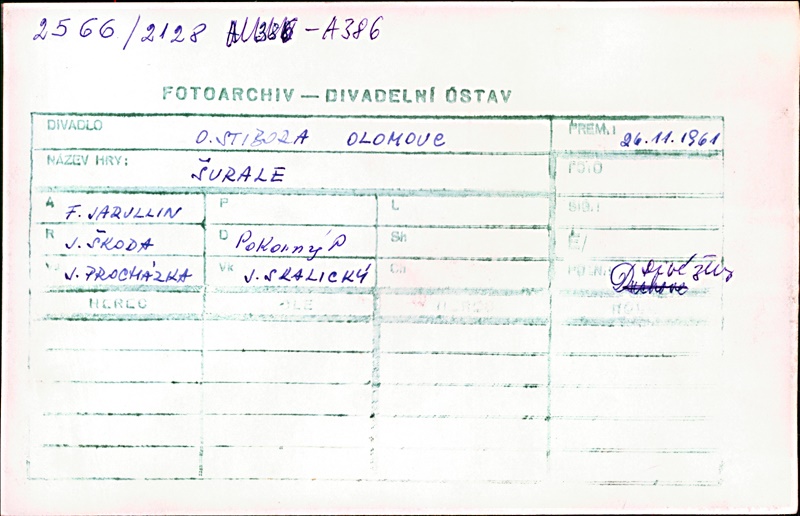 2566/2128 -A386
FOTOARCHIV — DIVADELNÍ ÚSTAV
DIVADLO O. STIBORA OLOMOUC PREM.: 26.11.1961
NÁZEV HRY: ŠURALE FOTO
A F. JARULLIN P L SIG.:
R J. ŠKODA D POKORNÝ P Sh Č/
V J. PROCHÁZKA Vk J. SKALICKÝ Ch POZN.:
HEREC ROLE HEREC ROLE